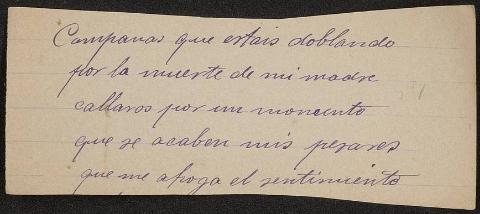 Campanas que estais doblando
por la muerte de mi madre
callaros por un momento
que se acaben mis pesares
que me ahoga el sentimiento